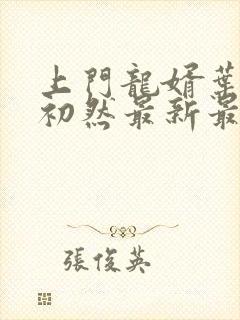 上門龍婿葉
初然最新最
張俊英